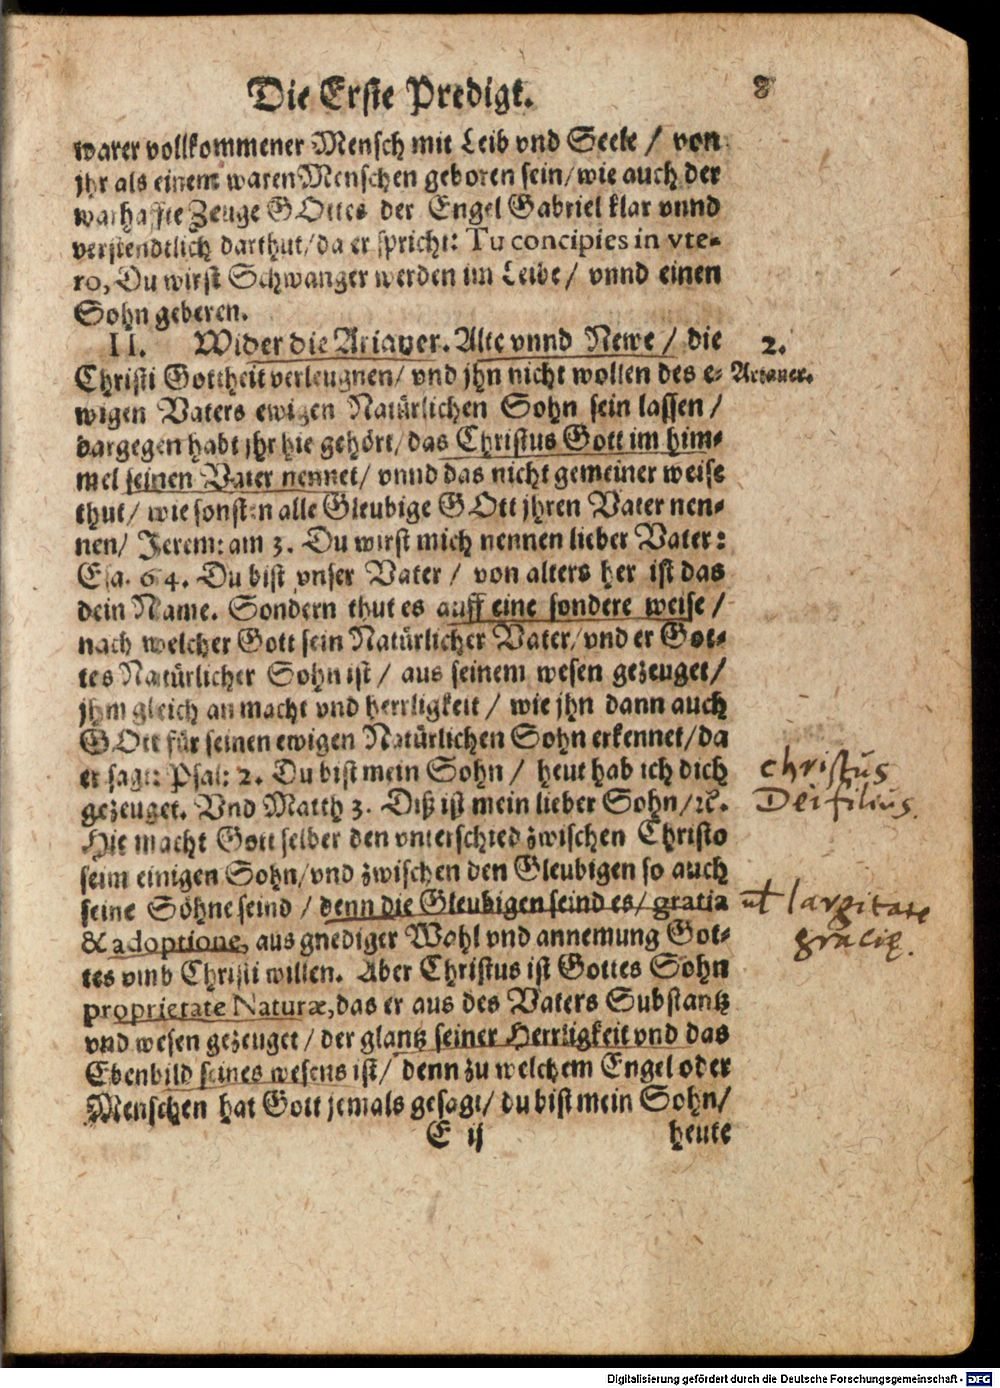 Die Erste Predigt. 8
warer vollkommener Mensch mit Leib vnd Seele / von
jhr als einem waren Menschen geboren sein / wie auch der
warhaffte Zeuge GOttes der Engel Gabriel klar vnnd
verstendtlich darthut / da er spricht: Tu concipies in vte-
ro, Du wirst Schwanger werden im Leibe / vnnd einen
Sohn geberen.
II. Wider die Arianer. Alte vnnd Newe / die
2.
Christi Gottheit verleugnen / vnd jhn nicht wollen des e-
Arianer.
wigen Vaters ewigen Natürlichen Sohn sein lassen /
dargegen habt jhr hie gehört / das Christus Gott im him-
mel seinen Vater nennet / vnnd das nicht gemeiner weise
thut / wie sonsten alle Gleubige GOtt jhren Vater nen-
nen / Jerem: am 3. Du wirst mich nennen lieber Vater:
Esa. 64. Du bist vnser Vater / von alters her ist das
dein Name. Sondern thut es auff eine sondere weise /
nach welcher Gott sein Natürlicher Vater / vnd er Got-
tes Natürlicher Sohn ist / aus seinem wesen gezeuget /
jhm gleich an macht vnd herrligkeit / wie jhn dann auch
GOtt für seinen ewigen Natürlichen Sohn erkennet / da
er sagt: Psal: 2. Du bist mein Sohn / heut hab ich dich
christus
gezeuget. Vnd Matth 3. Diß ist mein lieber Sohn / ꝛc.
Dei filius.
Hie macht Gott selber den vnterschied zwischen Christo
seim einigen Sohn / vnd zwischen den Gleubigen so auch
seine Söhne seind / denn die Gleubigen seind es / gratia
ut largitate
& adoptione, aus gnediger Wahl vnd annemung Got-
gracię.
tes vmb Christi willen. Aber Christus ist Gottes Sohn
proprietate Naturæ, das er aus des Vaters Substantz
vnd wesen gezeuget / der glantz seiner Herrligkeit vnd das
Ebenbild seines wesens ist / denn zu welchem Engel oder
Menschen hat Gott jemals gesagt / du bist mein Sohn /
E ij heute
Digitalisierung gefördert durch die Deutsche Forschungsgemeinschaft - DFG